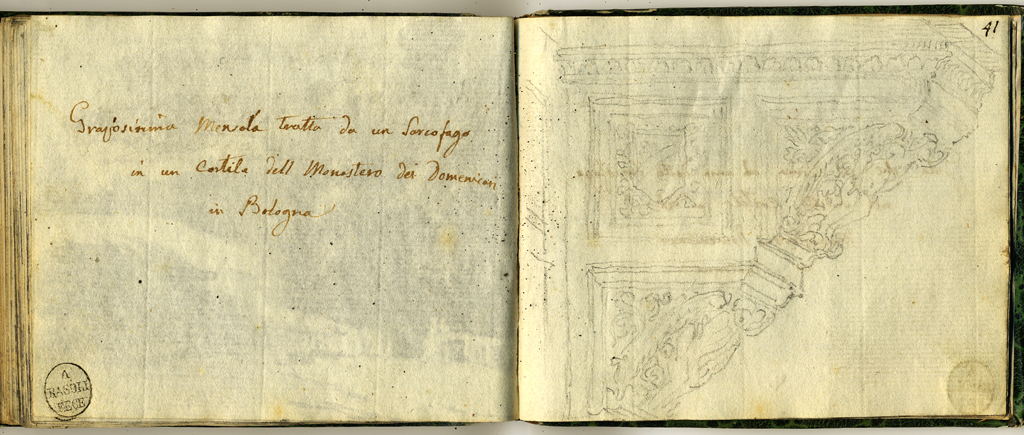 Graziosissima Mensola tratta da un Sarcofago
in un Cortile dell Monastero dei Domenicani
in Bologna
A
BASOLI
FECE
41